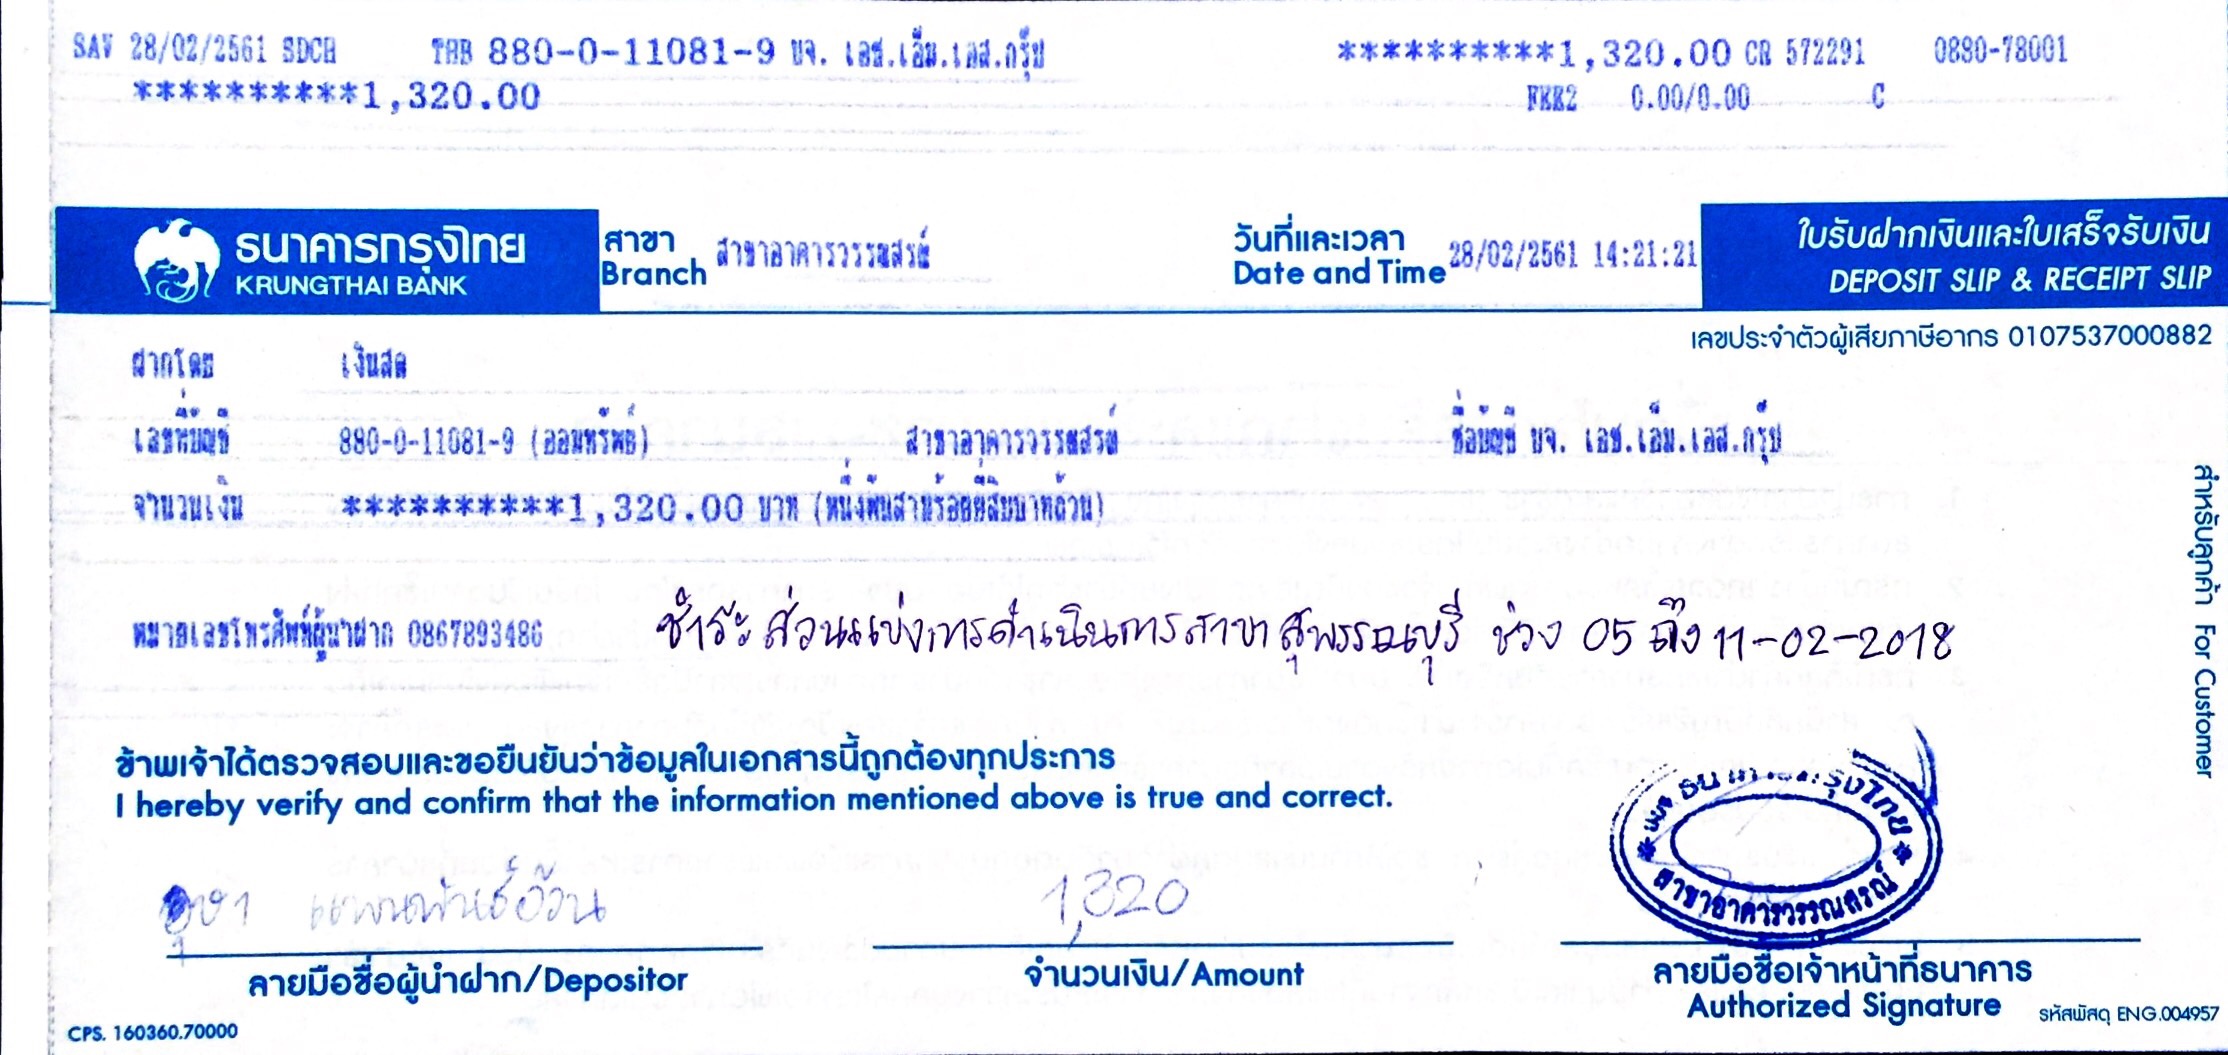 SAV 28/02/2561 SDCH THB 880-0-11081-9 บจ. เอช.เอ็ม.เอส.กรุ๊ป **********1,320.00 CR 572291 0880-78001
**********1,320.00 FEE2 0.00/0.00 C
ธนาคารกรุงไทย
KRUNGTHAI BANK
สาขา
Branch สาขาอาคารวรรณสรณ์
วันที่และเวลา
Date and Time 28/02/2561 14:21:21
ใบรับฝากเงินและใบเสร็จรับเงิน
DEPOSIT SLIP & RECEIPT SLIP
เลขประจำตัวผู้เสียภาษีอากร 0107537000882
ฝากโดย เงินสด
เลขที่บัญชี 880-0-11081-9 (ออมทรัพย์) สาขาอาคารวรรณสรณ์ ชื่อบัญชี บจ. เอช.เอ็ม.เอส.กรุ๊ป
จำนวนเงิน **********1,320.00 บาท (หนึ่งพันสามร้อยยี่สิบบาทถ้วน)
หมายเลขโทรศัพท์ผู้นำฝาก 0867893486 ชำระส่วนแบ่งการดำเนินการสาขาสุพรรณบุรี ช่วง 05 ถึง 11-02-2018
สำหรับลูกค้า For Customer
ข้าพเจ้าได้ตรวจสอบและขอยืนยันว่าข้อมูลในเอกสารนี้ถูกต้องทุกประการ
I hereby verify and confirm that the information mentioned above is true and correct.
1,320
ธนาคารกรุงไทย
สาขาอาคารวรรณสรณ์
ลายมือชื่อผู้นำฝาก/Depositor
จำนวนเงิน/Amount
ลายมือชื่อเจ้าหน้าที่ธนาคาร
Authorized Signature
CPS. 160360.70000
รหัสพัสดุ ENG.004957